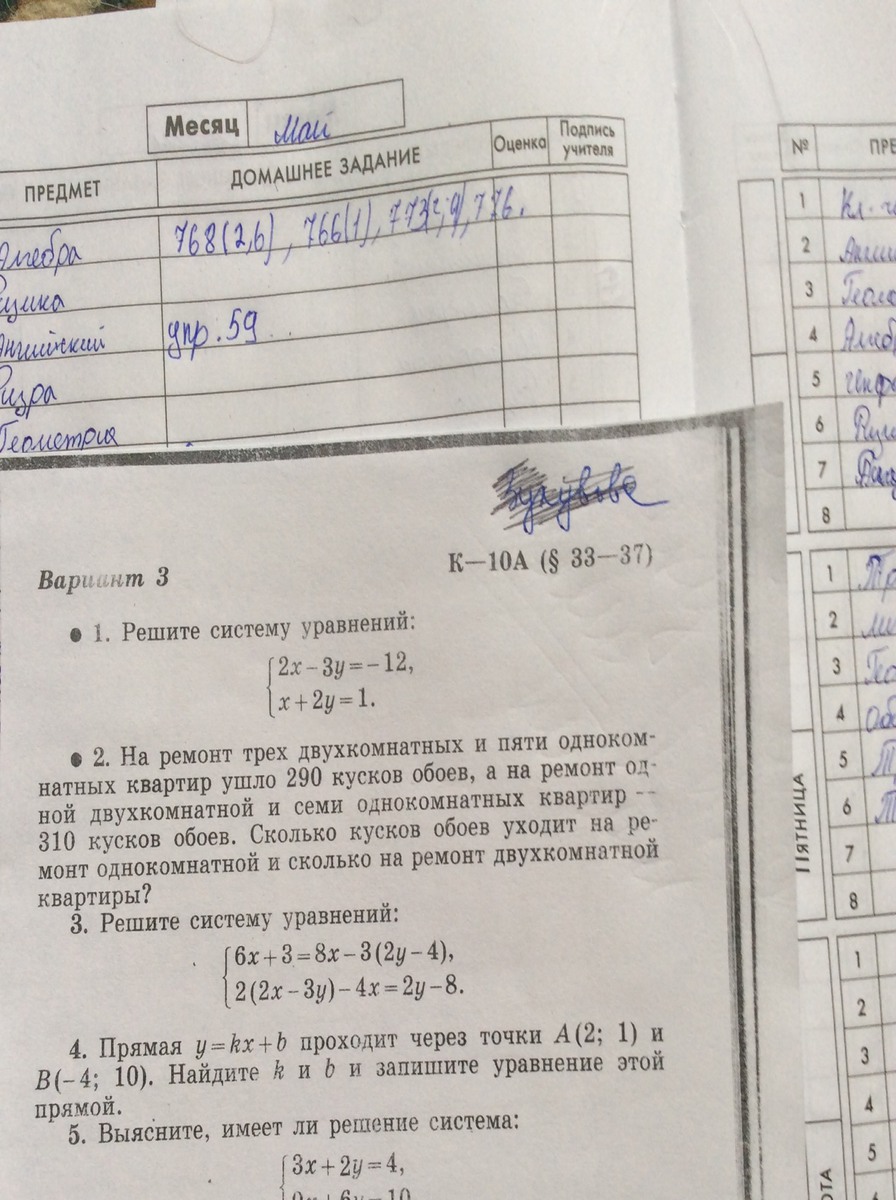 Месяц Май
ПРЕДМЕТ ДОМАШНЕЕ ЗАДАНИЕ Оценка Подпись учителя
Алгебра 768(2,6), 766(1), 776.
Физика
Английский упр. 59
Физра
Геометрия
№ ПРЕ
1
2
3
4
5
6
7
8
1
2
3
4
5
6
7
8
ПЯТНИЦА
1
2
3
4
5
ТА
К—10А (§ 33—37)
Вариант 3
1. Решите систему уравнений:
2x − 3y = −12,
x + 2y = 1.
2. На ремонт трех двухкомнатных и пяти одноком-
натных квартир ушло 290 кусков обоев, а на ремонт од-
ной двухкомнатной и семи однокомнатных квартир —
310 кусков обоев. Сколько кусков обоев уходит на ре-
монт однокомнатной и сколько на ремонт двухкомнатной
квартиры?
3. Решите систему уравнений:
6x + 3 = 8x − 3(2y − 4),
2(2x − 3y) − 4x = 2y − 8.
4. Прямая y = kx + b проходит через точки A(2; 1) и
B(−4; 10). Найдите k и b и запишите уравнение этой
прямой.
5. Выясните, имеет ли решение система:
3x + 2y = 4,